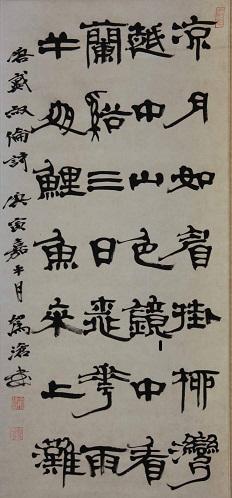 凉月如眉掛柳灣
越中山色鏡中看
蘭谿三日桃華雨
半夜鯉魚來上灘
唐戴叔倫詩 庚寅嘉平月 滄書